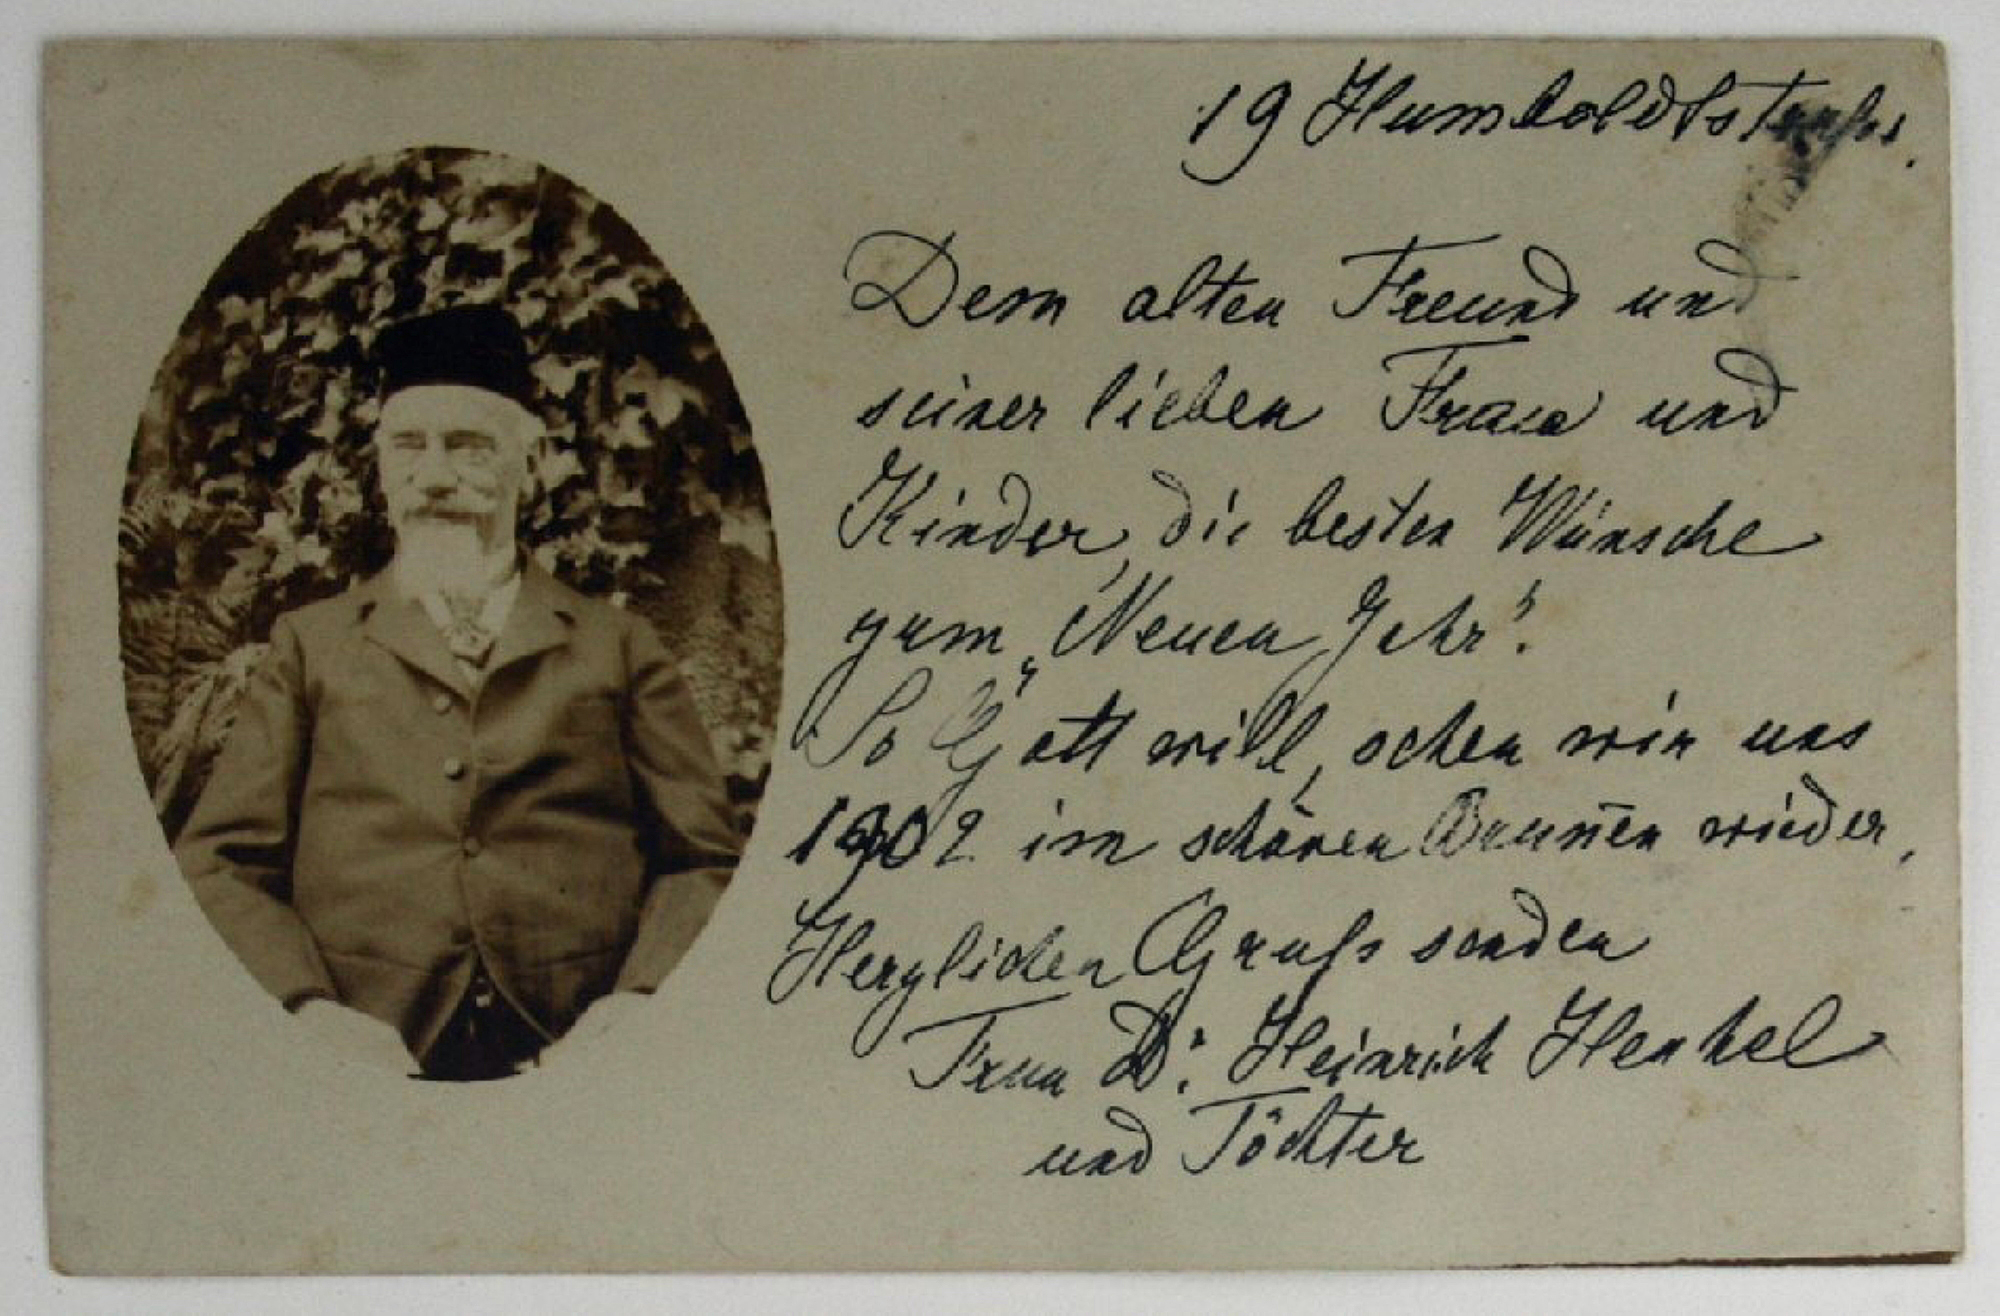 19 Humboldtstrasse.
Dem alten Freund und
seiner lieben Frau und
Kinder, die besten Wünsche
zum „Neuen Jahr“!
So Gott will, sehen wir uns
1902 im schönen Brun̄en wieder,
Herzlichen Gruſs senden
Frau Dr. Heinrich Henkel
und Töchter